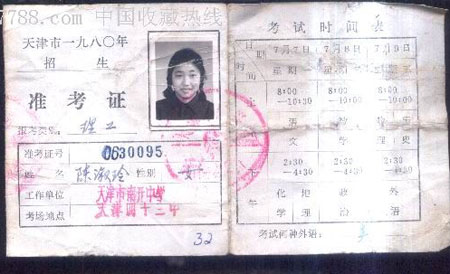 7788.com 中国收藏热线
天津市一九八〇年
招 生
准考证
报考类别 理工
准考证号 0630095
姓名 陈淑玲 性别 女
工作单位 天津市南开中学
考场地点 天津四十三中
32
考试时间表
日期 7月7日 7月8日 7月9日
时间 星期一 星期 星期
上 8:00 8:00 8:00
—10:30 —10:00 —10:00
语 数 历
文 学 史
2:30 2:30 2:30
—4:30 —4:30 —4:30
化 地 政 外
学 理 治 语
考试何种外语：